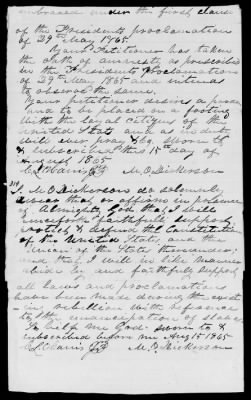 embraced under the first clause
of the Presidents proclamation
of 29th May 1865.
Your Petitioner has taken
the oath of amnesty as prescribed
in the Presidents Proclamation
of 29th May 1865 and intends
to observe the same.
Your petitioner desires a pardon
and to be placed on a footing
with the loyal citizens of the
United States and as in duty
will ever pray &c. Sworn to
& subscribed this 15th day of
August 1865
M. O. Dickerson
I, M. O. Dickerson do solemnly
swear that or affirm in presence
of Almighty God that I will
henceforth faithfully support
protect & defend the Constitution
of the United States and the
Union of the States thereunder;
and that I will in like manner
abide by and faithfully support
all laws and proclamations
have been made during the existing
rebellion with reference
to the emancipation of slaves
So help me God. sworn to &
subscribed before me Aug 15 1865
M. O. Dickerson